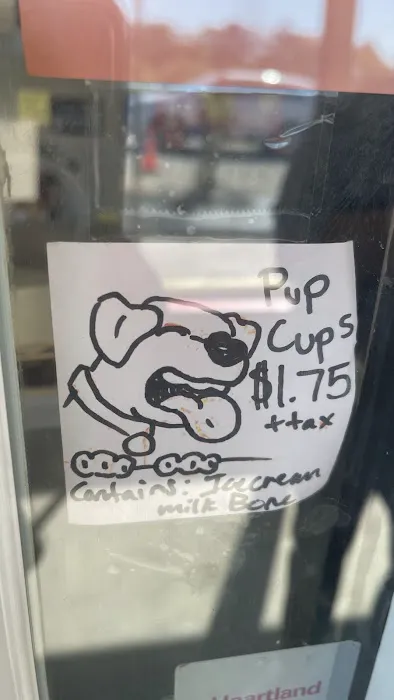 Pup
Cups
$1.75
+tax
Contains: Icecream
milk Bone
Heartland